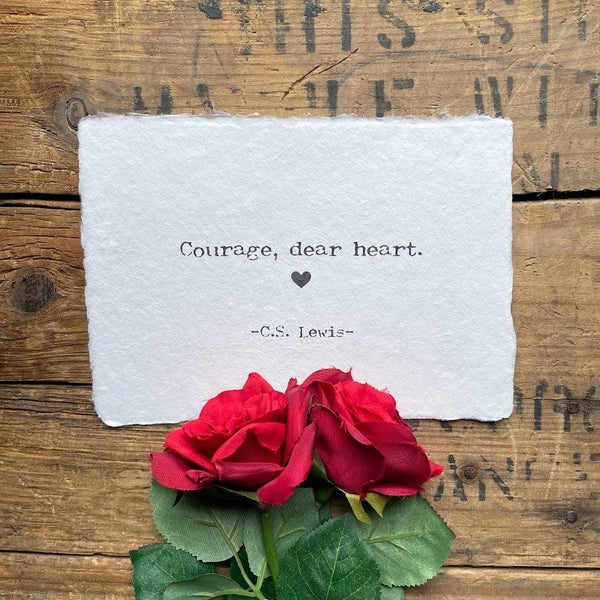 THIS
Courage, dear heart.
♥
-C.S. Lewis-